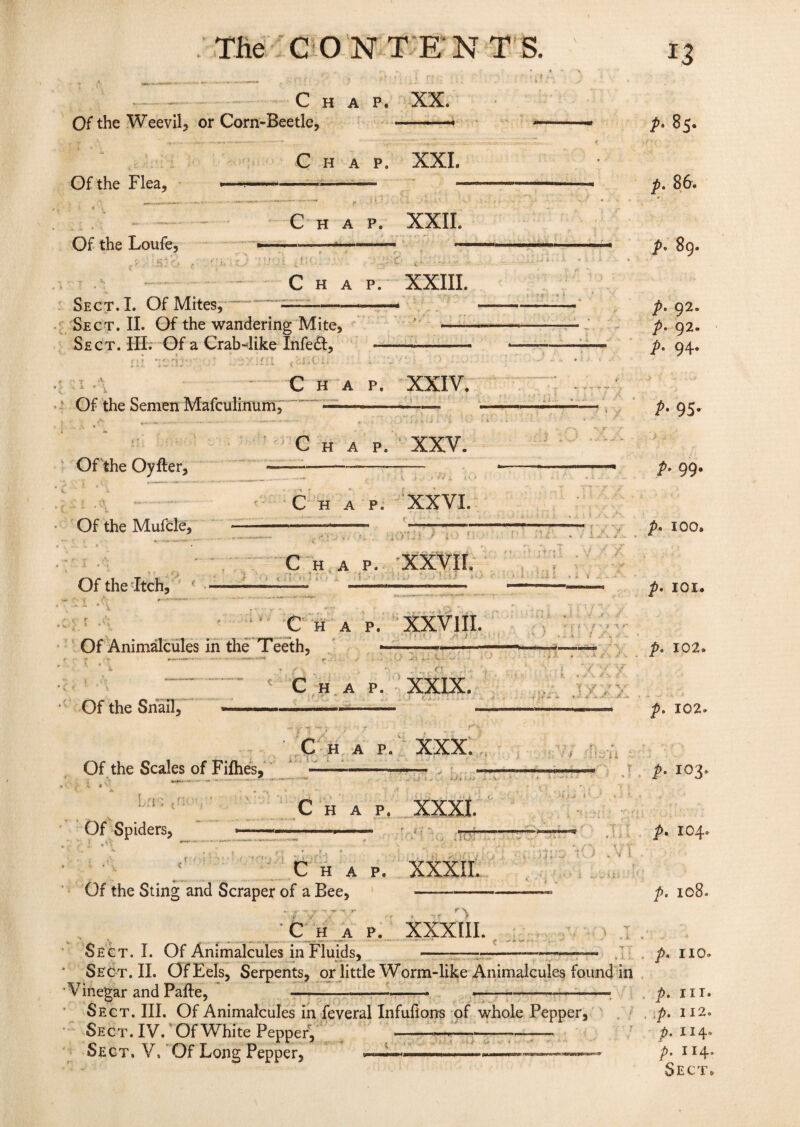 The CONTENTS. 13
CHAP. XX.
Of the Weevil, or Corn-Beetle, p. 85.
CHAP. XXI.
Of the Flea, p. 86.
CHAP. XXII.
Of the Louſe, p. 89.
CHAP. XXIII.
SECT. I. Of Mites, p. 92.
SECT. II. Of the wandering Mite, p. 92.
SECT. III. Of a Crab-like Inſect, p. 94.
CHAP. XXIV.
Of the Semen Maſculinum, p. 95.
CHAP. XXV.
Of the Oyſter, p. 99.
CHAP. XXVI.
Of the Muſcle, p. 100.
CHAP. XXVII.
Of the Itch, p. 101.
CHAP. XXVIII.
Of Animalcules in the Teeth, p. 102.
CHAP. XXIX.
Of the Snail, p. 102.
CHAP. XXX.
Of the Scales of Fiſhes, p. 103.
CHAP. XXXI.
Of Spiders, p. 104.
CHAP. XXXII.
Of the Sting and Scraper of a Bee, p. 108.
CHAP. XXXIII.
SECT. I. Of Animalcules in Fluids, p. 110.
SECT. II. Of Eels, Serpents, or little Worm-like Animalcules found in
Vinegar and Paſte, p. 111.
SECT. III. Of Animalcules in ſeveral Infuſions of whole Pepper, p. 112.
SECT. IV. Of White Pepper, p. 114.
SECT. V. Of Long Pepper, p. 114.
SECT.